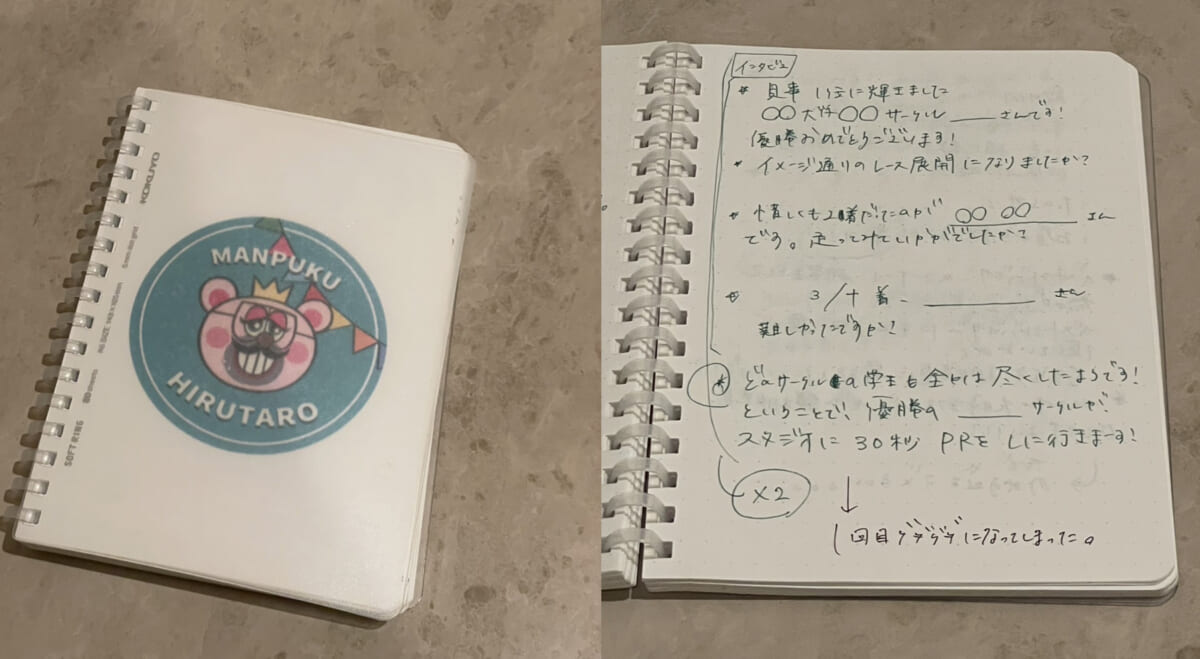 KOKUYO
5 mm dot grid
A6 SIZE 148×105mm
80 sheets
SOFT RING
MANPUKU
HIRUTARO
インタビュー
* 見事 1位に輝きました
○○大学○○サークル ___さんです!
優勝おめでとうございます!
* イメージ通りのレース展開になりましたか?
* 惜しくも2着だったのが ○○ ○○ さん
です。走ってみていかがでしたか?
* 3/十着、 ___ さん
難しかったですか?
* どのサークルの学生も全力は尽くしたようです!
ということで、優勝の ___ サークルが?
スタジオに 30秒 PRを しに行きまーす!
×2
↓
1回目グダグダになってしまった。